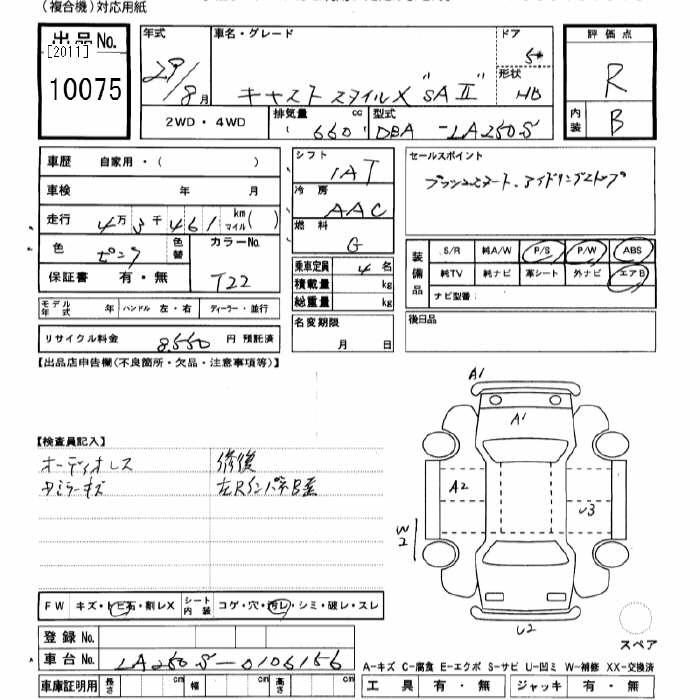 (複合機)対応用紙
出品No. [2011] 10075
年式 29/8月
車名・グレード キャスト スタイルX "SAⅡ"
ドア 5
形状 HB
評価点 R
内装 B
2WD・4WD
排気量 660 cc
型式 DBA-LA250S
車歴 自家用・( )
車検 年 月
走行 4万3千461 km マイル( )
色 ピンク 色替
カラーNo. T22
保証書 有・無
シフト IAT
冷房 AAC
燃料 G
乗車定員 4名
積載量 kg
総重量 kg
セールスポイント
プッシュスタート、アイドリングストップ
装備品 S/R 純A/W P/S P/W ABS
純TV 純ナビ 革シート 外ナビ エアB
ナビ型番:
モデル年式 年 ハンドル 左・右 ディーラー・並行
名変期限 月 日
後日品
リサイクル料金 8,550 円 預託済
【出品店申告欄(不良箇所・欠品・注意事項等)】
A1
A1
【検査員記入】
オーディオレス 修復
ミラーキズ 左Rインパネ
A2
U3
W2
U2
FW キズ・トビ石・割レX シート内装 コゲ・穴・汚レ・シミ・破レ・スレ
スペア
登録No.
車台No. LA250S-0106156
A-キズ C-腐食 E-エクボ S-サビ U-凹ミ W-補修 XX-交換済
車庫証明用 長さ cm 幅 cm 高さ cm
工具 有・無 ジャッキ 有・無